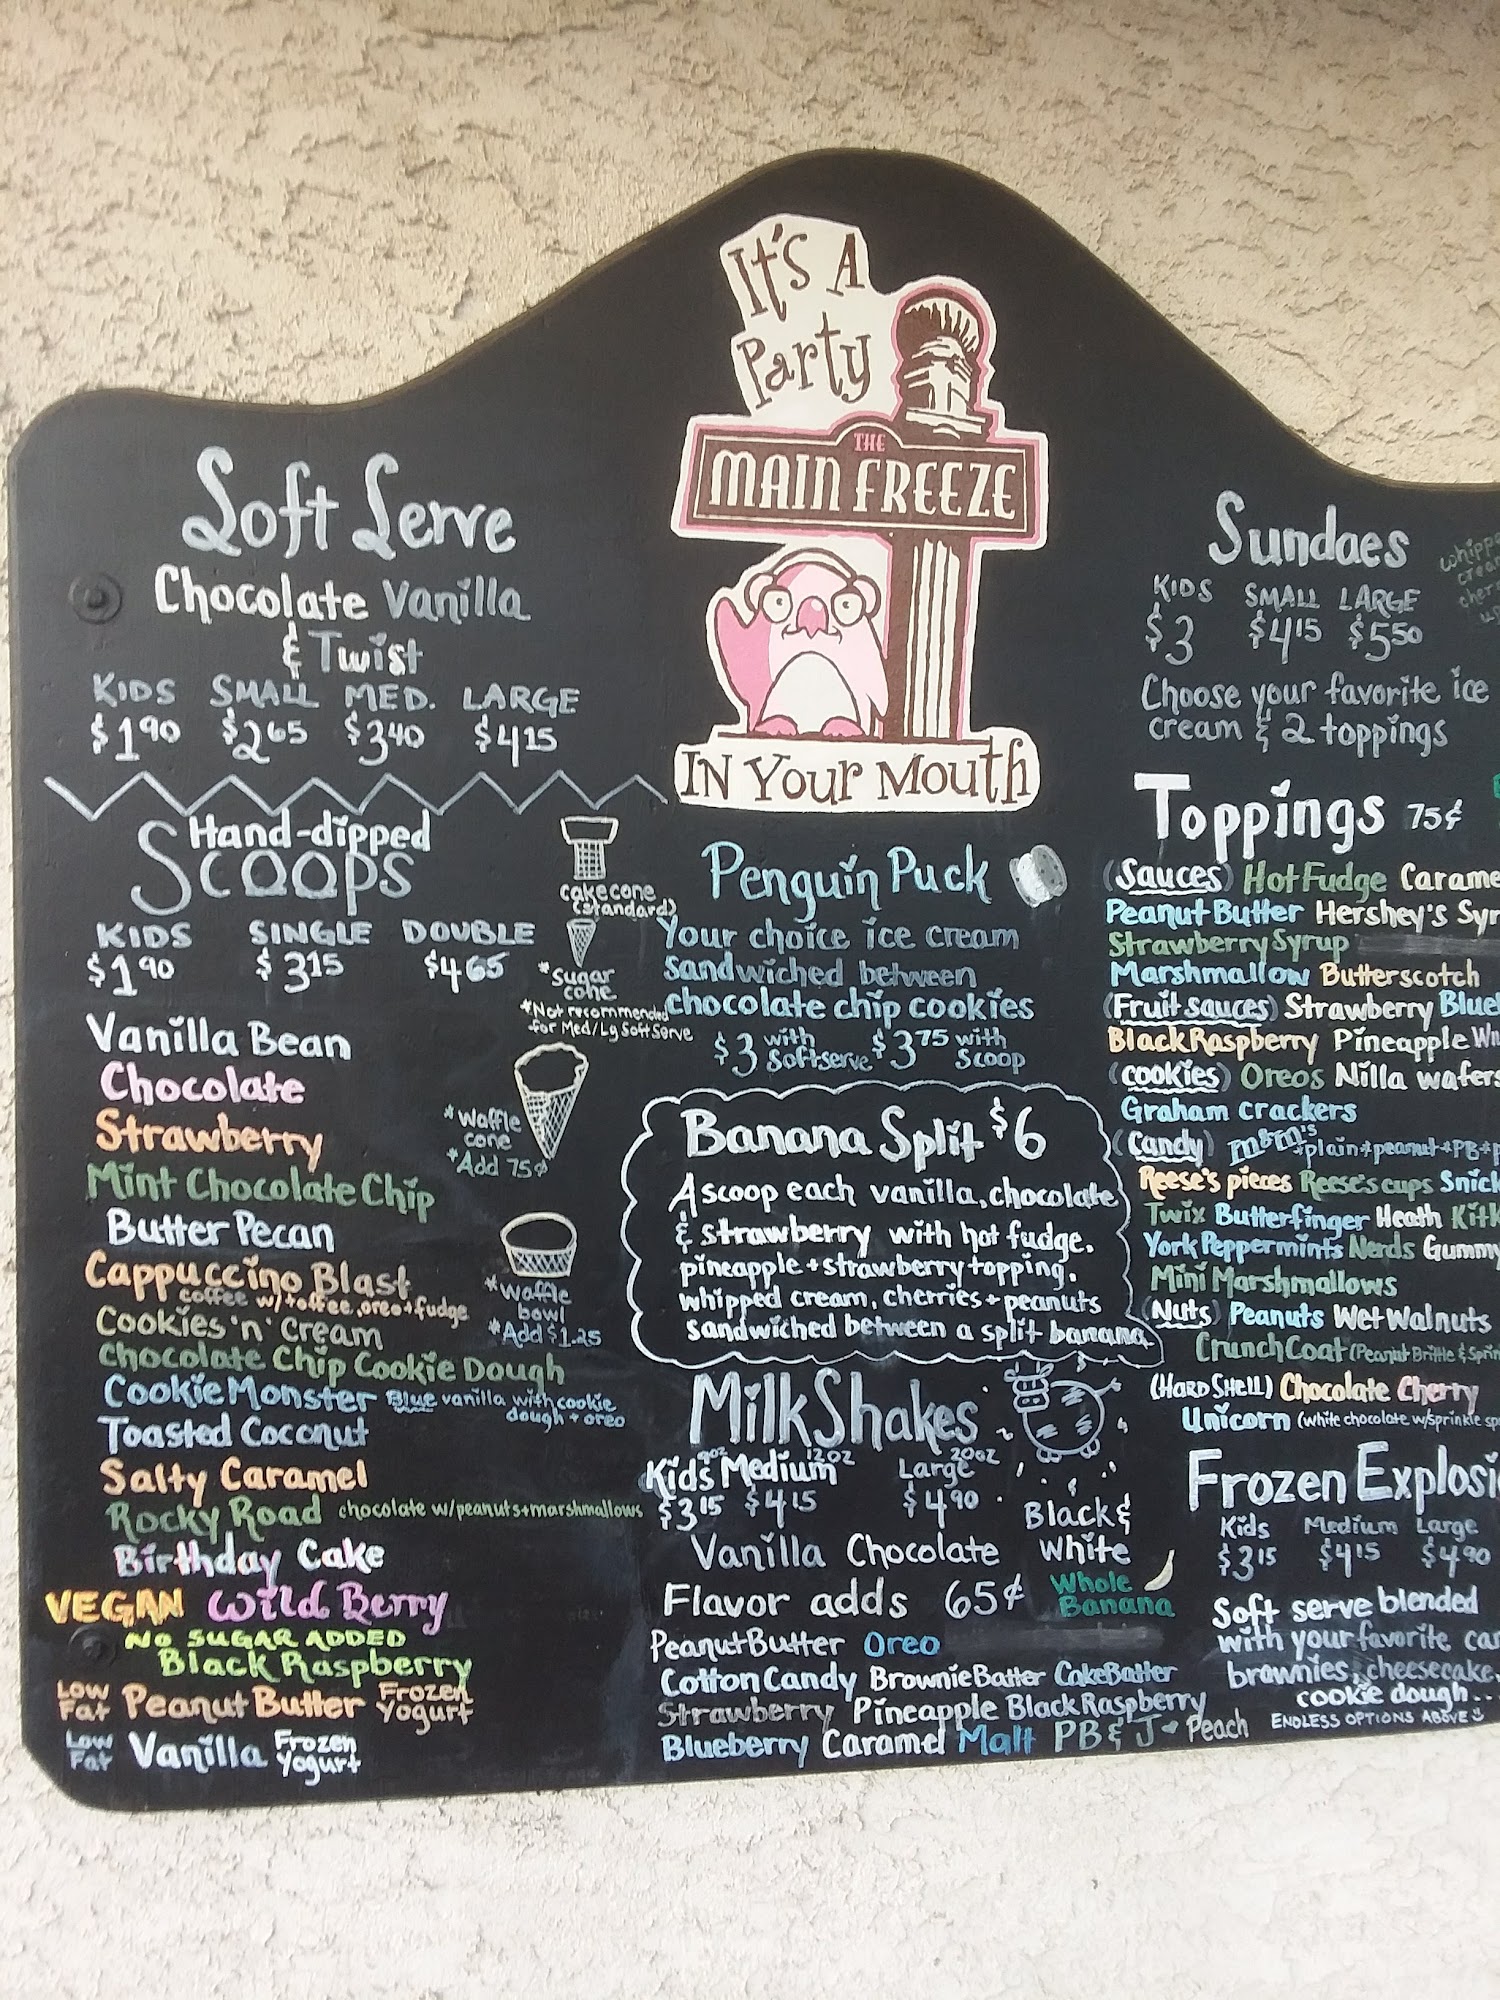 It's A
Party
THE
MAIN FREEZE
IN Your Mouth
Soft Serve
Chocolate Vanilla
& Twist
KIDS SMALL MED. LARGE
$1.90 $2.65 $3.40 $4.15
Hand-dipped
Scoops
KIDS SINGLE DOUBLE
$1.90 $3.15 $4.65
cake cone
(standard)
*Sugar
cone
*Not recommended
for Med/Lg Soft Serve
*Waffle
cone
*Add 75¢
*Waffle
bowl
*Add $1.25
Vanilla Bean
Chocolate
Strawberry
Mint Chocolate Chip
Butter Pecan
Cappuccino Blast
coffee w/toffee, oreo+fudge
Cookies 'n' Cream
Chocolate Chip Cookie Dough
Cookie Monster Blue vanilla with cookie
dough + oreo
Toasted Coconut
Salty Caramel
Rocky Road chocolate w/peanuts+marshmallows
Birthday Cake
VEGAN Wild Berry
NO SUGAR ADDED
Black Raspberry
Low Fat Peanut Butter Frozen Yogurt
Low Fat Vanilla Frozen Yogurt
Penguin Puck
Your choice ice cream
sandwiched between
chocolate chip cookies
$3 with Softserve $3.75 with Scoop
Banana Split $6
A scoop each vanilla, chocolate
& strawberry with hot fudge,
pineapple + strawberry topping,
whipped cream, cherries + peanuts
sandwiched between a split banana
MilkShakes
Kids 9oz Medium 12oz Large 20oz
$3.15 $4.15 $4.90
Black &
White
Vanilla Chocolate
Flavor adds 65¢
Whole
Banana
PeanutButter Oreo
Cotton Candy Brownie Batter Cake Batter
Strawberry Pineapple Black Raspberry
Blueberry Caramel Malt PB & J Peach
Sundaes
KIDS SMALL LARGE
$3 $4.15 $5.50
Choose your favorite ice
cream & 2 toppings
Toppings 75¢
(Sauces) Hot Fudge Carame
Peanut Butter Hershey's Syr
Strawberry Syrup
Marshmallow Butterscotch
(Fruit sauces) Strawberry Blue
Black Raspberry Pineapple
(cookies) Oreos Nilla wafers
Graham crackers
(candy) m&m's *plain*peanut*PB*
Reese's pieces Reese's cups Snick
Twix Butterfinger Heath Kitk
York Peppermints Nerds Gummy
Mini Marshmallows
(Nuts) Peanuts Wet Walnuts
Crunch Coat (Peanut Brittle & Sprin
(Hard Shell) Chocolate Cherry
Unicorn (white chocolate w/sprinkle
Frozen Explosi
Kids Medium Large
$3.15 $4.15 $4.90
Soft serve blended
with your favorite ca
brownies, cheesecake,
cookie dough...
ENDLESS OPTIONS ABOVE